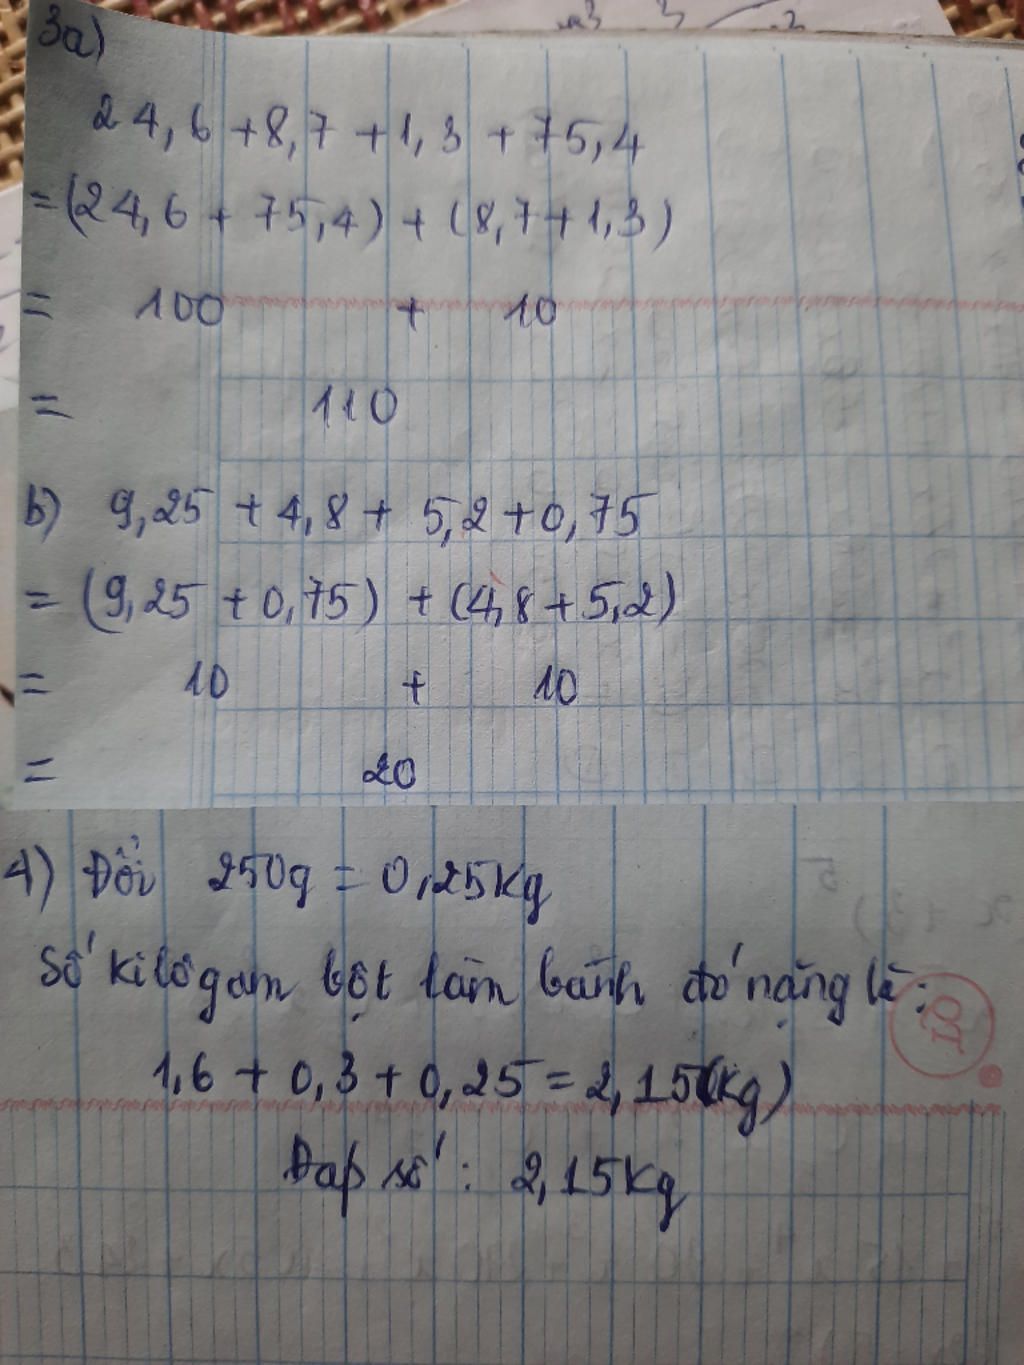 3a)
24,6 + 8,7 + 1,3 + 75,4
= (24,6 + 75,4) + (8,7 + 1,3)
= 100 + 10
= 110
b) 9,25 + 4,8 + 5,2 + 0,75
= (9,25 + 0,75) + (4,8 + 5,2)
= 10 + 10
= 20
4) Đổi 250g = 0,25kg
Số kilôgam bột làm bánh đó nặng là:
1,6 + 0,3 + 0,25 = 2,15 (kg)
Đap số: 2,15kg